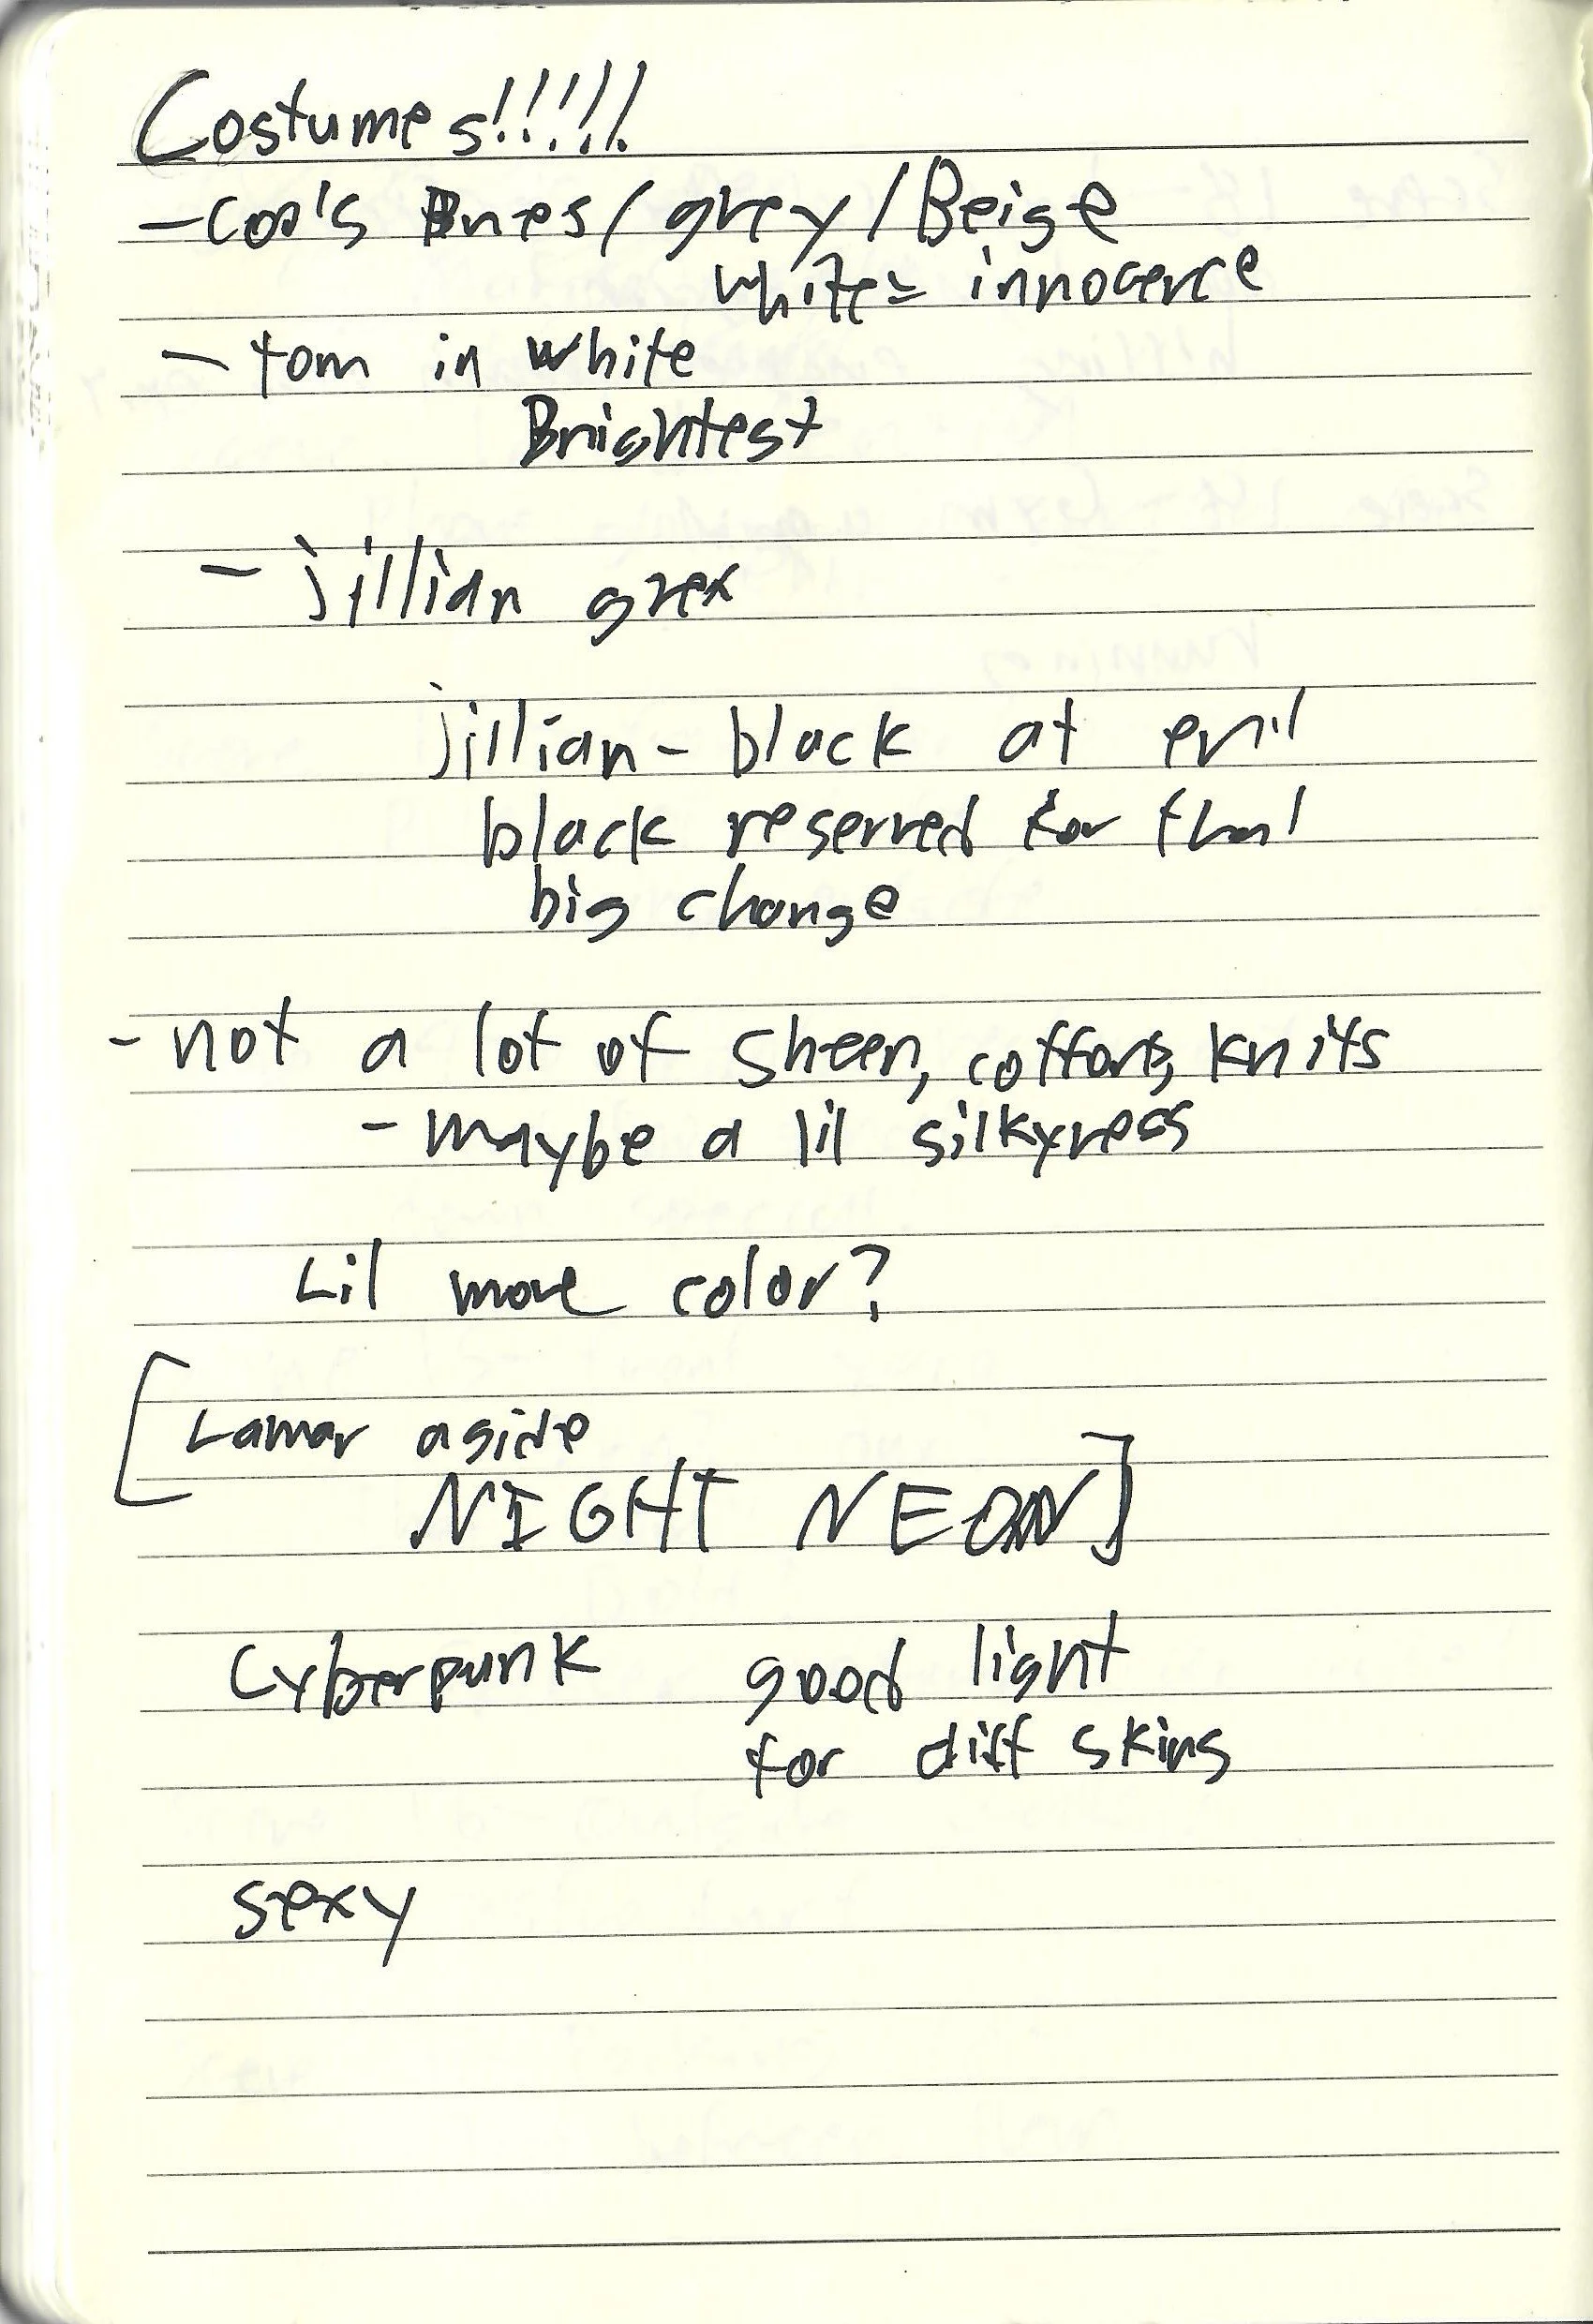 Costumes!!!!!
- Coo's Bues / grey / Beige
white = innocence
- tom in white
Brightest
- jillian grey
jillian - black at evil
black reserved for that
big change
- not a lot of sheen, cottons, knits
- maybe a lil silkyness
Lil more color?
[Lamar aside
NIGHT NEON]
Cyberpunk good light
for diff skins
sexy